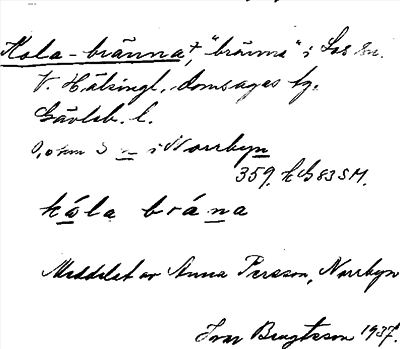 Kola-bränna +, "bränna" i Los sn.
V. Hälsingl. domsagas tg.
Gävleb. l.
0,0 km S n i Norrbyn
359. Kb 83 SM.
kåla brána
Meddelat av Anna Persson, Norrbyn
Ivar Bengtsson 1937.